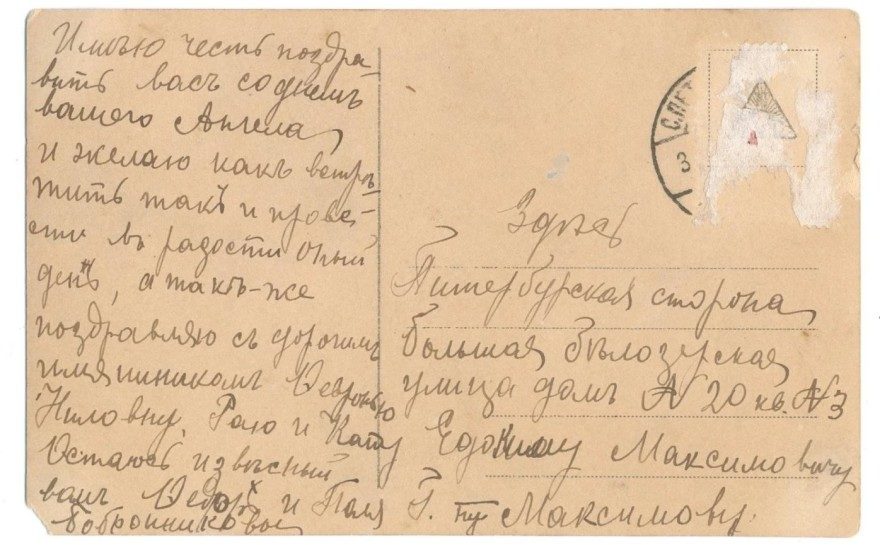 Имѣю честь поздра-
вить васъ со днемъ
вашего Ангела
и желаю какъ встрѣ-
тить такъ и прове-
сти въ радости оный
день, а такъ-же
поздравляю съ дорогимъ
имянинникомъ Февронью
Ниловну, Раю и Катю
Остаюсь извѣсный
вамъ Ѳедоръ и Поля
Бобронниковы
С.ПЕТ
3
Здѣсь
Питербурская сторона
большая бѣлозерская
улица домъ N 20 кв. N 3
Максимовичу
Г. Максимову.